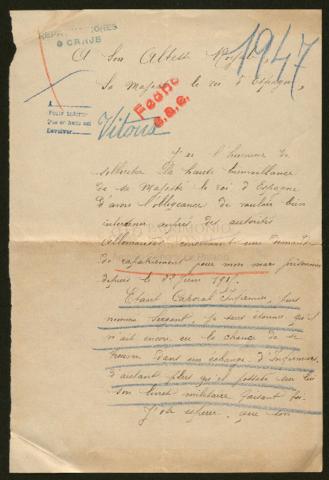 REPATRIACIONES
O CANJE
1947
A Son Altesse Royale
Sa Majesté le roi d'Espagne,
Fecho
A
Vitoria
J'ai l'honneur de
solliciter la haute bienveillance
de sa Majesté le roi d'Espagne
d'avoir l'obligeance de vouloir bien
intervenir auprès des autorités
Allemandes concernant une demande
de rapatriement pour mon mari prisonnier
depuis le juin
Etant Caporal Infirmier, puis
nommé sergent, je suis étonnée qu'il
n'ait encore eu la chance de se
trouver dans un échange d'Infirmiers
d'autant plus qu'il possède sur lui
son livret militaire faisant foi.
J'ose espérer, que son